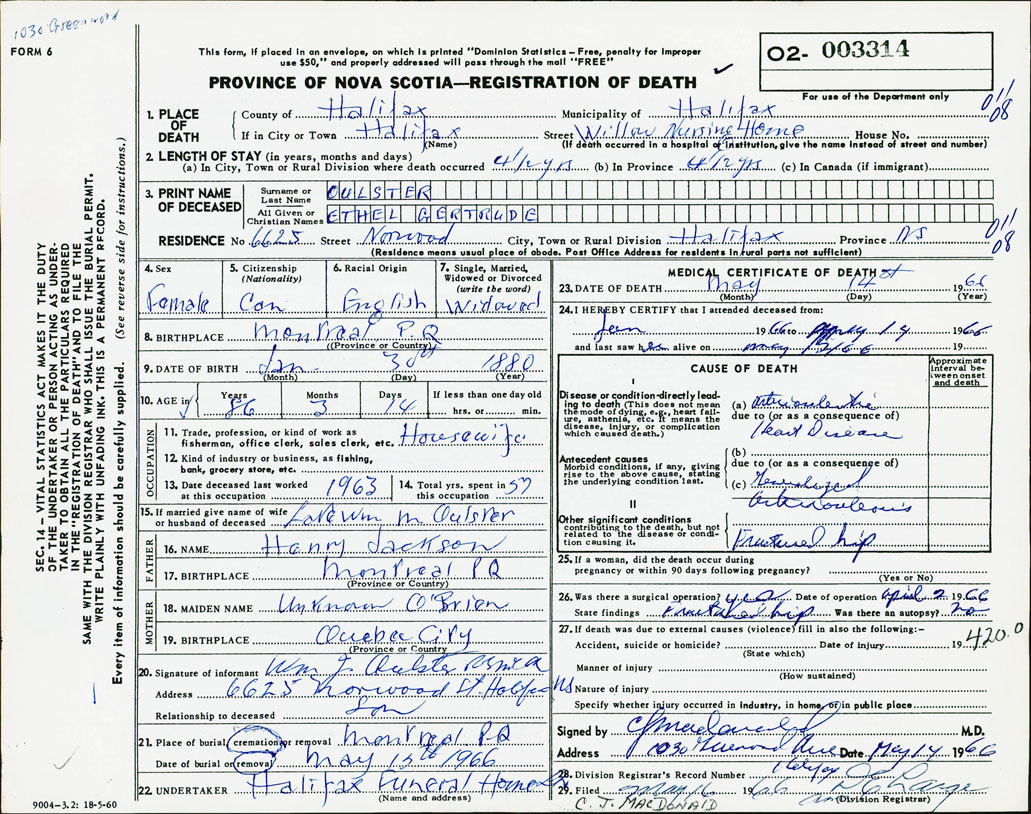 1030 Greenwood
FORM 6
This form, if placed in an envelope, on which is printed "Dominion Statistics – Free, penalty for improper
use $50," and properly addressed will pass through the mail "FREE"
PROVINCE OF NOVA SCOTIA—REGISTRATION OF DEATH
O2- 003314
For use of the Department only
011
08
SEC. 14 – VITAL STATISTICS ACT MAKES IT THE DUTY
OF THE UNDERTAKER OR PERSON ACTING AS UNDER-
TAKER TO OBTAIN ALL THE PARTICULARS REQUIRED
IN THE "REGISTRATION OF DEATH" AND TO FILE THE
SAME WITH THE DIVISION REGISTRAR WHO SHALL ISSUE THE BURIAL PERMIT.
WRITE PLAINLY WITH UNFADING INK. THIS IS A PERMANENT RECORD.
Every item of information should be carefully supplied. (See reverse side for instructions.)
1. PLACE OF DEATH County of Halifax Municipality of Halifax
If in City or Town Halifax Street Willow Nursing Home House No.
(Name) (If death occurred in a hospital or institution, give the name instead of street and number)
2. LENGTH OF STAY (in years, months and days)
(a) In City, Town or Rural Division where death occurred 4 1/2 yrs (b) In Province 4 1/2 yrs (c) In Canada (if immigrant)
3. PRINT NAME OF DECEASED Surname or Last Name OULSTER
All Given or Christian Names ETHEL GERTRUDE
RESIDENCE No. 6625 Street Norwood City, Town or Rural Division Halifax Province NS
011
08
(Residence means usual place of abode. Post Office Address for residents in rural parts not sufficient)
4. Sex Female
5. Citizenship (Nationality) Can
6. Racial Origin English
7. Single, Married, Widowed or Divorced (write the word) Widowed
8. BIRTHPLACE Montreal P.Q
(Province or Country)
9. DATE OF BIRTH Jan. 30th 1880
(Month) (Day) (Year)
10. AGE in Years 86 Months 3 Days 14 If less than one day old hrs. or min.
OCCUPATION
11. Trade, profession, or kind of work as
fisherman, office clerk, sales clerk, etc. Housewife
12. Kind of industry or business, as fishing,
bank, grocery store, etc.
13. Date deceased last worked at this occupation 1963
14. Total yrs. spent in this occupation 57
15. If married give name of wife or husband of deceased Late Wm M Oulster
FATHER
16. NAME Henry Jackson
17. BIRTHPLACE Montreal PQ
(Province or Country)
MOTHER
18. MAIDEN NAME Unknown O'Brien
19. BIRTHPLACE Quebec City
(Province or Country)
20. Signature of informant Wm J. Oulster
Address 6625 Norwood St. Halifax NS
Relationship to deceased Son
21. Place of burial, cremation or removal Montreal PQ
Date of burial or removal May 15th 1966
22. UNDERTAKER Halifax Funeral Home
(Name and address)
9004-3.2: 18-5-60
MEDICAL CERTIFICATE OF DEATH
23. DATE OF DEATH May 14 st 1966
(Month) (Day) (Year)
24. I HEREBY CERTIFY that I attended deceased from:
Jan 1966 to May 14 1966
and last saw her alive on May 13/66 19
CAUSE OF DEATH
Approximate interval be-tween onset and death
I
Disease or condition directly lead-
ing to death (This does not mean
the mode of dying, e.g., heart fail-
ure, asthenia, etc. It means the
disease, injury, or complication
which caused death.)
(a) Arteriosclerotic
due to (or as a consequence of)
Heart Disease
Antecedent causes
Morbid conditions, if any, giving
rise to the above cause, stating
the underlying condition last.
(b)
due to (or as a consequence of)
(c) Generalized
Arteriosclerosis
II
Other significant conditions
contributing to the death, but not
related to the disease or condi-
tion causing it.
Fractured hip
25. If a woman, did the death occur during
pregnancy or within 90 days following pregnancy?
(Yes or No)
26. Was there a surgical operation? yes Date of operation April 2 1966
State findings Fractured hip Was there an autopsy? no
27. If death was due to external causes (violence) fill in also the following:–
Accident, suicide or homicide? Date of injury 19
420.0
(State which)
Manner of injury
(How sustained)
Nature of injury
Specify whether injury occurred in industry, in home, or in public place
Signed by M.D.
Address 1030 Greenwood Ave Date May 14 1966
Halifax
28. Division Registrar's Record Number
29. Filed May 16 1966
(Division Registrar)
C. J. MACDONALD